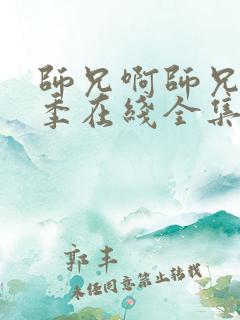 師兄啊師兄
季在綫全集
郭丰
未经同意禁止转载